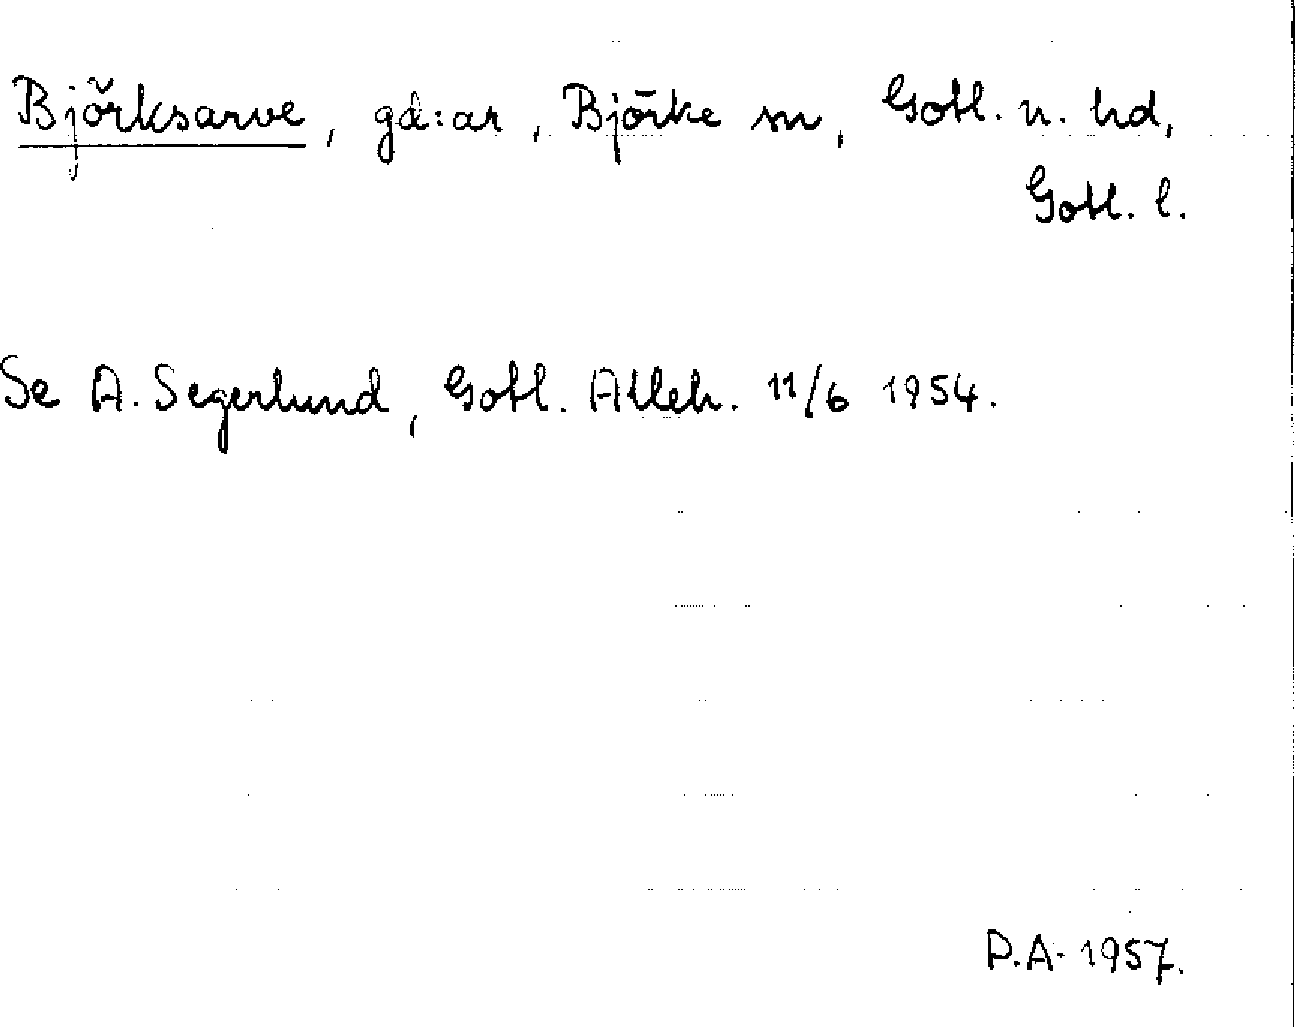 Björksarve, gd:ar, Björke sn, Gotl. n. hd,
Gotl. l.
Se A. Segerlund, Gotl. Alleh. 11/6 1954.
P.A. 1957.